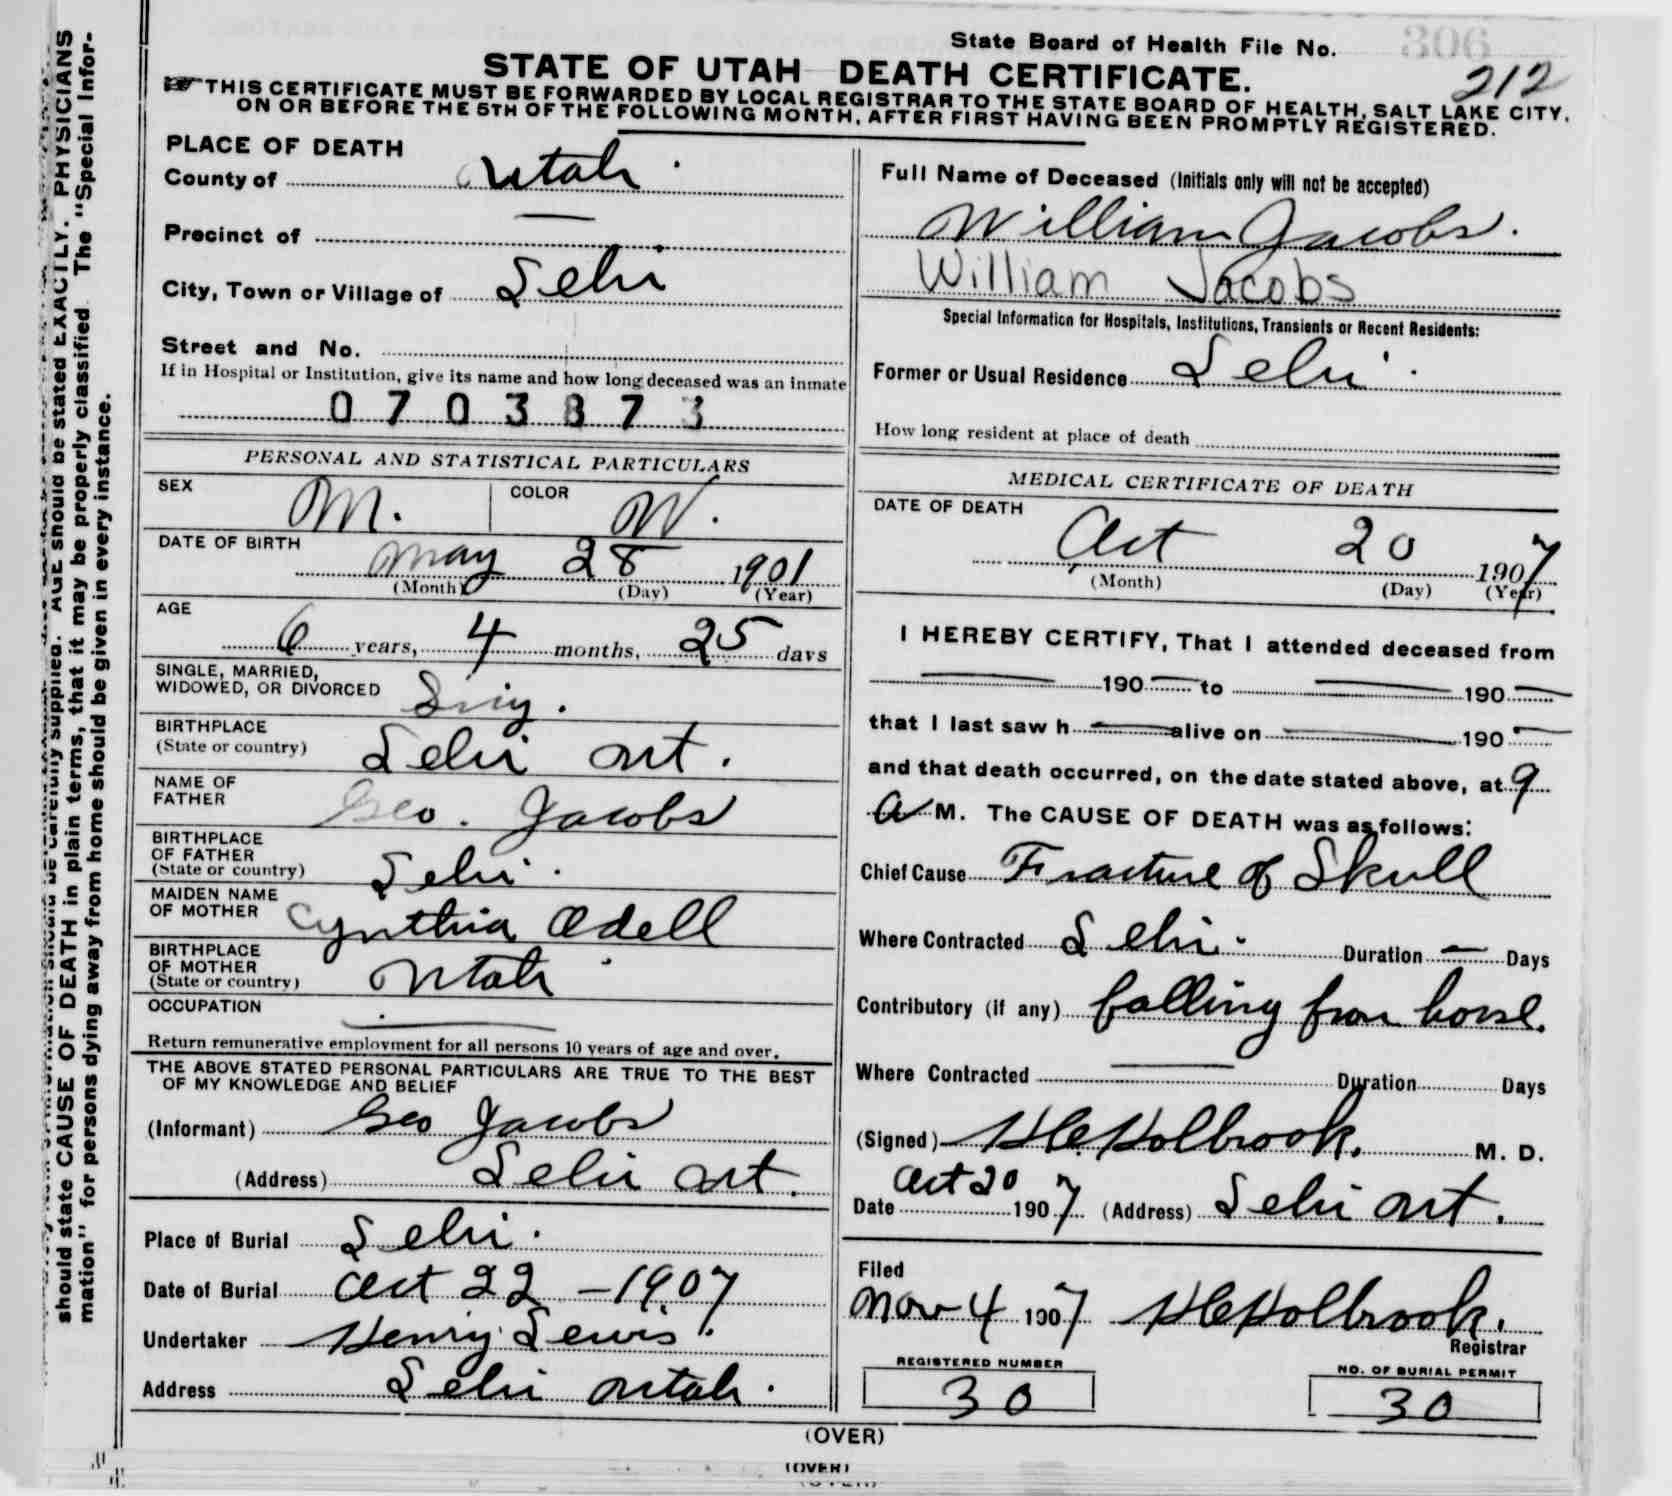 State Board of Health File No. 306
212
STATE OF UTAH DEATH CERTIFICATE.
THIS CERTIFICATE MUST BE FORWARDED BY LOCAL REGISTRAR TO THE STATE BOARD OF HEALTH, SALT LAKE CITY,
ON OR BEFORE THE 5TH OF THE FOLLOWING MONTH, AFTER FIRST HAVING BEEN PROMPTLY REGISTERED.
PLACE OF DEATH
County of Utah.
Precinct of —
City, Town or Village of Lehi
Street and No.
If in Hospital or Institution, give its name and how long deceased was an inmate
0703873
PERSONAL AND STATISTICAL PARTICULARS
SEX M. COLOR W.
DATE OF BIRTH May 28 1901
(Month) (Day) (Year)
AGE
6 years, 4 months, 25 days
SINGLE, MARRIED,
WIDOWED, OR DIVORCED Sing.
BIRTHPLACE
(State or country) Lehi Ut.
NAME OF
FATHER Geo. Jacobs
BIRTHPLACE
OF FATHER
(State or country) Lehi.
MAIDEN NAME
OF MOTHER Cynthia Odell
BIRTHPLACE
OF MOTHER
(State or country) Utah
OCCUPATION —
Return remunerative employment for all persons 10 years of age and over.
THE ABOVE STATED PERSONAL PARTICULARS ARE TRUE TO THE BEST
OF MY KNOWLEDGE AND BELIEF
(Informant) Geo Jacobs
(Address) Lehi Ut.
Place of Burial Lehi.
Date of Burial Oct 22 - 1907
Undertaker Henry Lewis.
Address Lehi Utah.
Full Name of Deceased (Initials only will not be accepted)
William Jacobs.
William Jacobs
Special Information for Hospitals, Institutions, Transients or Recent Residents:
Former or Usual Residence Lehi.
How long resident at place of death
MEDICAL CERTIFICATE OF DEATH
DATE OF DEATH
Oct 20 1907
(Month) (Day) (Year)
I HEREBY CERTIFY, That I attended deceased from
— 190— to — 190—
that I last saw h— alive on — 190—
and that death occurred, on the date stated above, at 9
a M. The CAUSE OF DEATH was as follows:
Chief Cause Fracture of Skull
Where Contracted Lehi. Duration — Days
Contributory (if any) falling from horse.
Where Contracted — Duration Days
(Signed) H C Holbrook. M. D.
Date Oct 20 1907 (Address) Lehi Ut.
Filed
Nov 4 1907 H C Holbrook.
Registrar
REGISTERED NUMBER
30
NO. OF BURIAL PERMIT
30
(OVER)
(OVER)
AGE should be stated EXACTLY. PHYSICIANS
should state CAUSE OF DEATH in plain terms, that it may be properly classified. The "Special Infor-
mation" for persons dying away from home should be given in every instance.